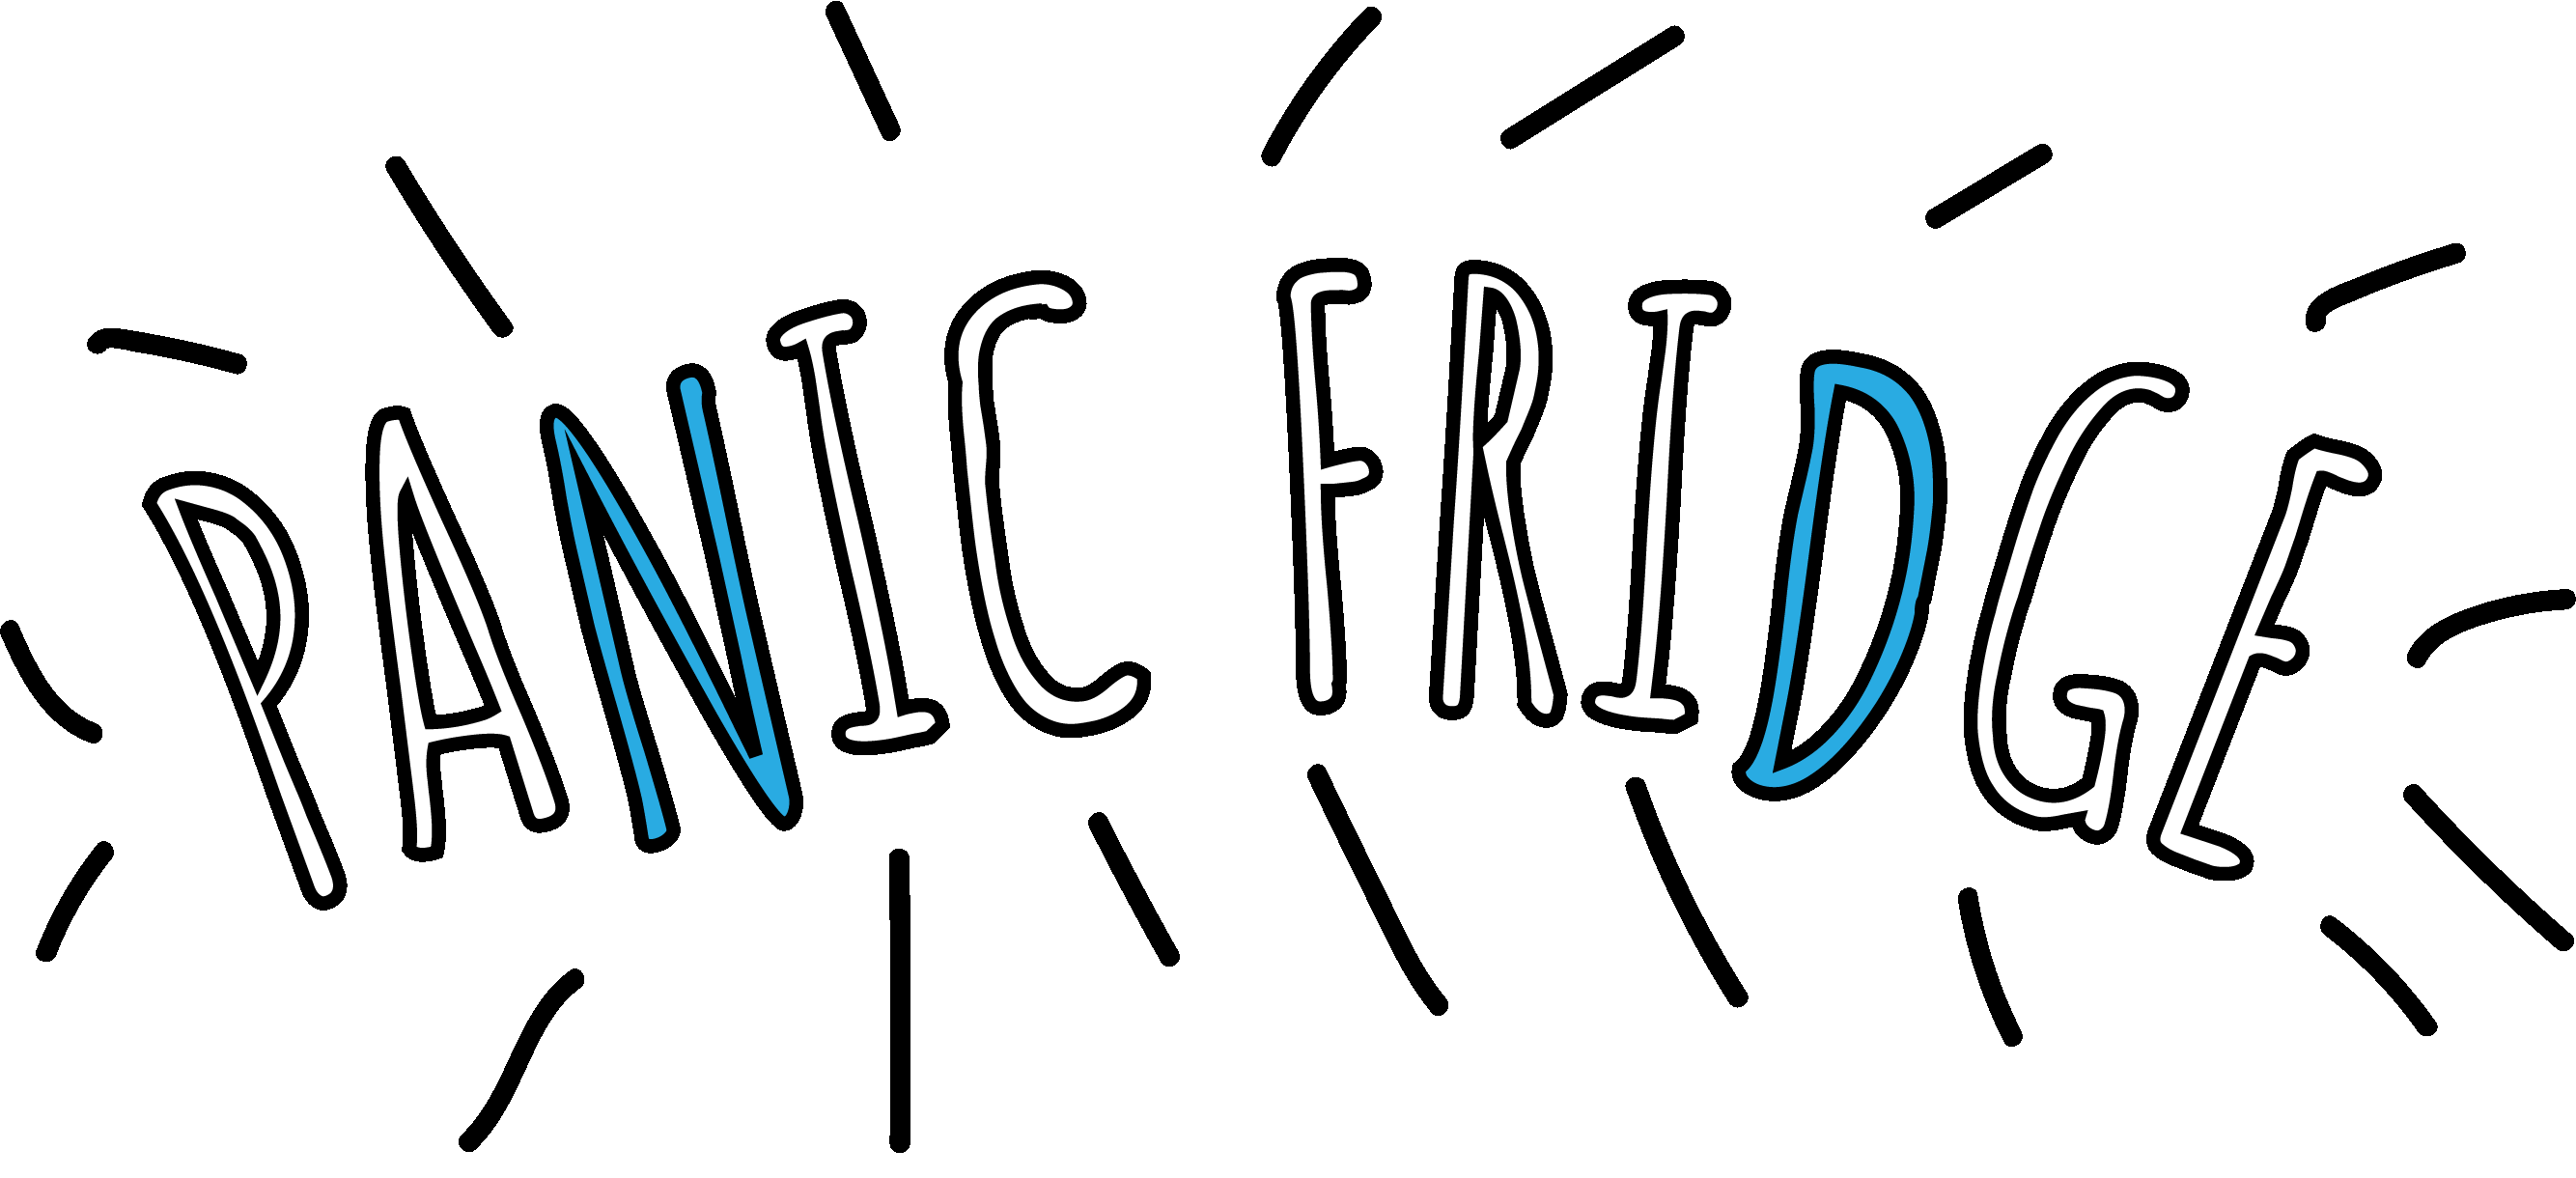 PANIC FRIDGE